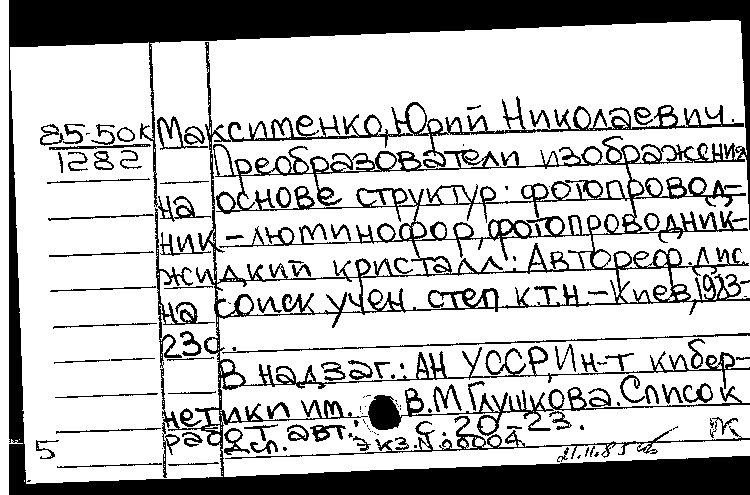 85-50к Максименко, Юрий Николаевич.
1282 Преобразователи изображения
на основе структур: фотопровод-
ник-люминофор, фотопроводник-
жидкий кристалл: Автореф. дис.
на соиск. учен. степ. к.т.н.-Киев, 1983-
23с.
В надзаг.: АН УССР, Ин-т кибер-
нетики им. В.М.Глушкова. Список
работ авт.: с. 20-23.
5 Дсп. Экз.N 00004.
21.11.85 ПК